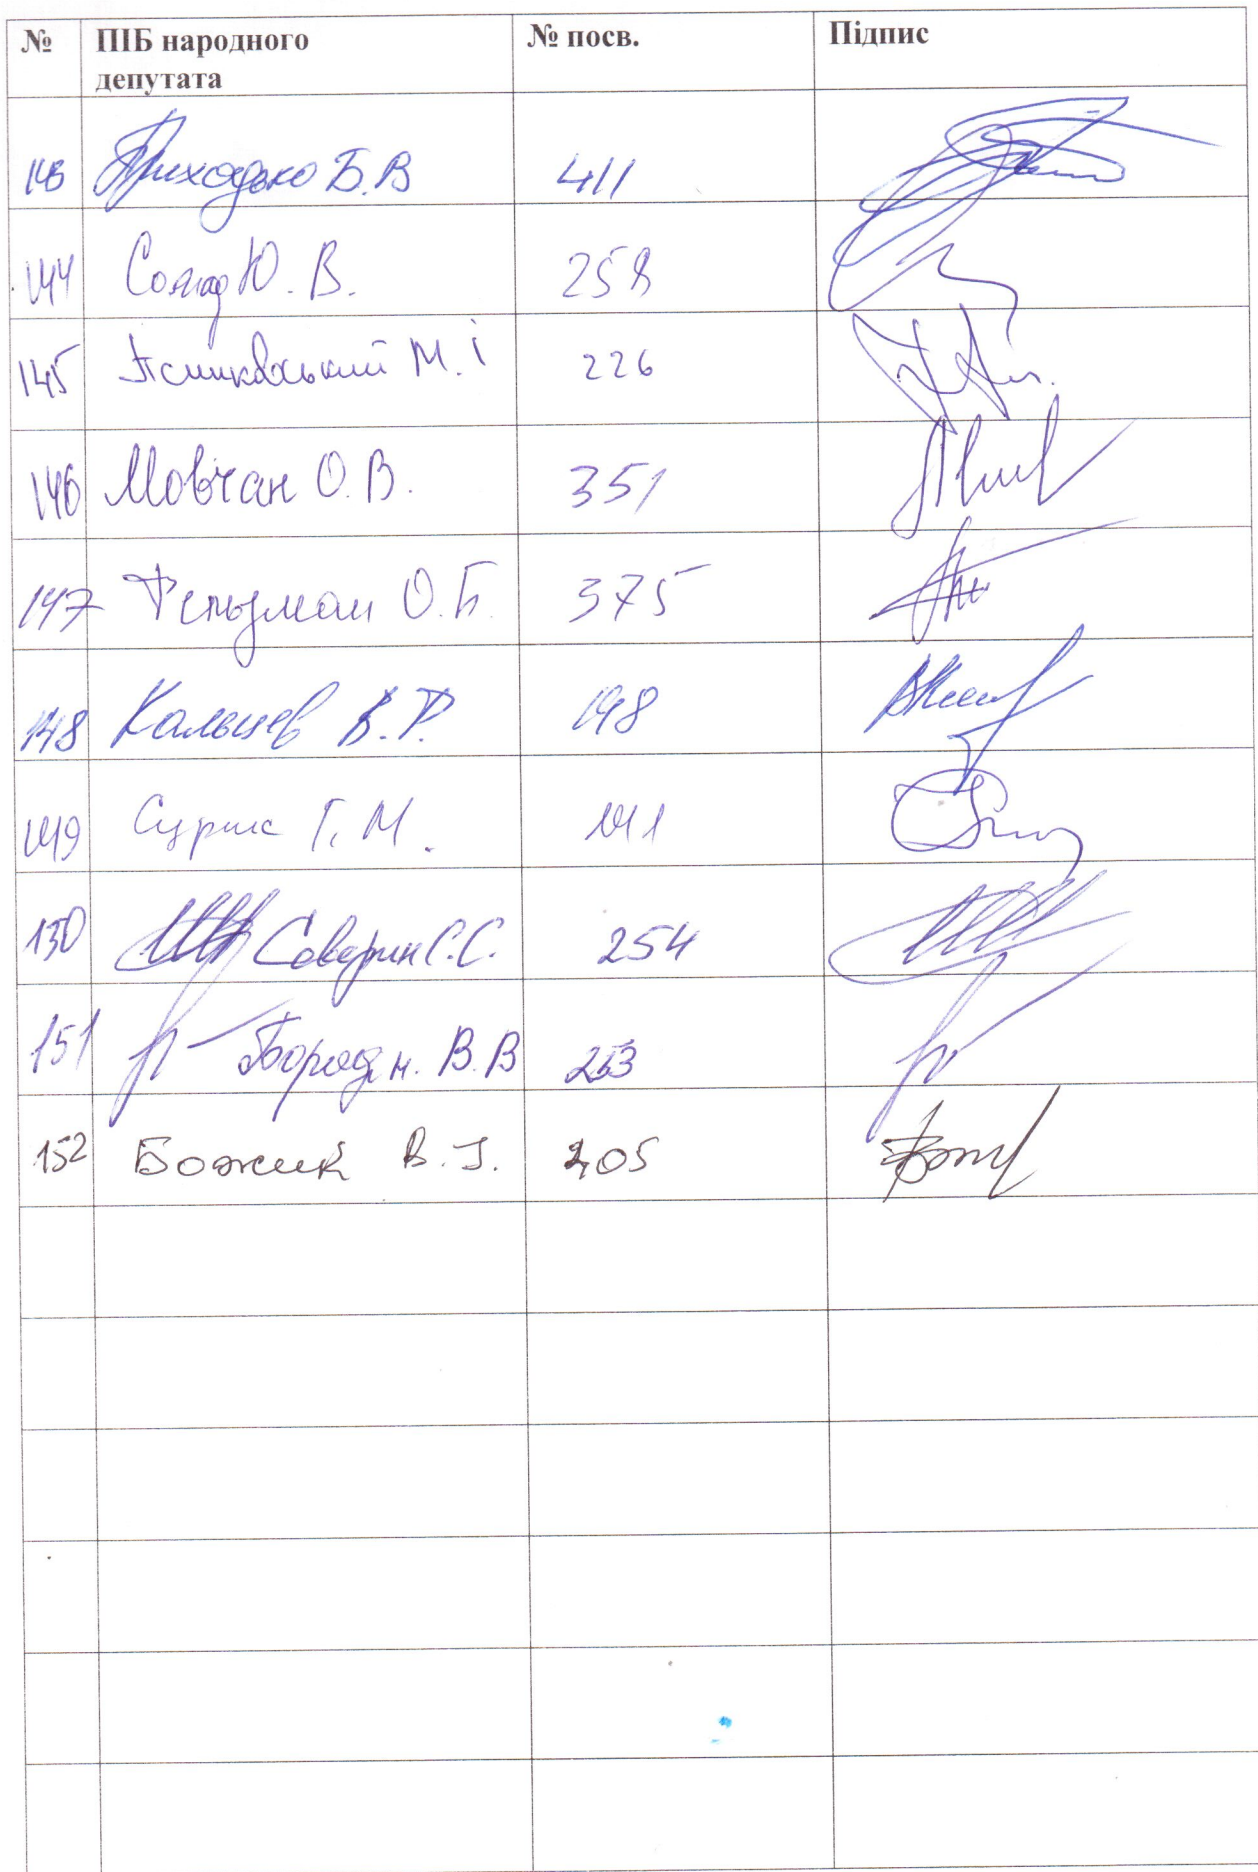 № ПІБ народного депутата № посв. Підпис
143 Приходько Б.В 411
144 Солод Ю.В. 258
145 М.І 226
146 Мовчан О.В. 351
147 Фельдман О.Б. 375
148 Кальцев В.Ф. 198
149 Суркіс Г.М. 141
150 Северин С.С. 254
151 В.В 253
152 Божик В.І. 205